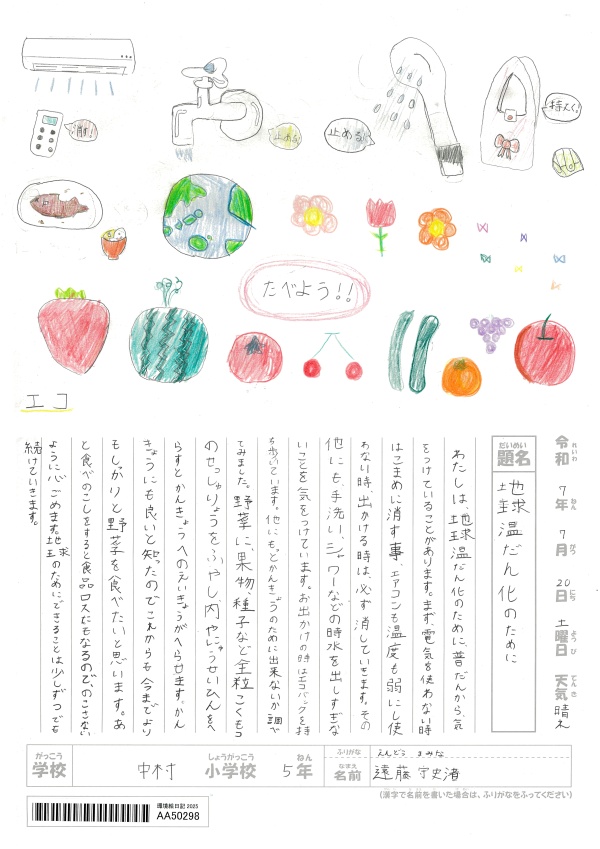 消す!
止める
止める
持とく!
たべよう!!
エコ
令和7年7月20日土曜日天気晴れ
れいわ ねん がつ にち ようび てんき
だいめい
題名
地球温だん化のために
わたしは、地球温だん化のために、普だんから、気
をつけていることがあります。まず、電気を使わない時
はこまめに消す事、エアコンも温度も弱にし使
わない時、出かける時は、必ず消していきます。その
他にも、手洗い、シャワーなどの時水を出しすぎな
いことを気をつけています。お出かけの時はエコバックを持
ち歩いています。他にもっとかんきょうのために出来ないか調べ
てみました。野菜に、果物、種子など全粒こくもつ
のせっしゅりょうをふやし、肉やにゅうせいひんをへ
らすとかんきょうへのえいきょうがへらせます。かん
きょうにも良いと知ったのでこれからも今までより
もしかりと野菜を食べたいと思います。あ
と食べのこしをすると食品ロスにもなるので、のこさない
ように心ごめます。地球のためにできることは少しずつでも
続けていきます。
がっこう
学校
中木寸
しょうがっこう
小学校
5年
ねん
ふりがな
えんどう みな
なまえ
名前
遠藤
(漢字で名前を書いた場合は、ふりがなをふってください)
環境絵日記 2025
AA50298